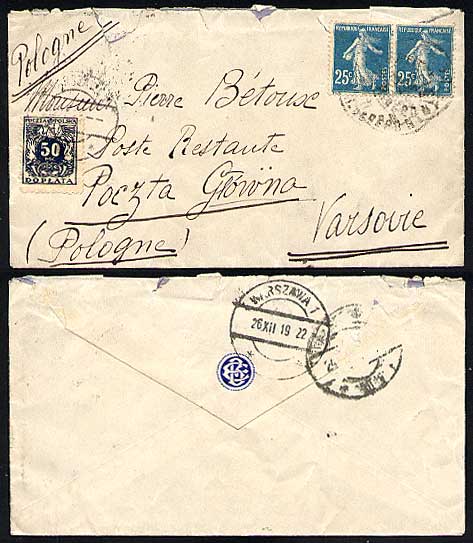 Pologne
REPUBLIQUE FRANÇAISE REPUBLIQUE FRANÇAISE
25c POSTES 25c POSTES
Monsieur Pierre Bétoux
POCZTA POLSKA
50
DOPŁATA
Poste Restante
Poczta Główna
(Pologne) Varsovie
WARSZAWA 1
26 XII 19 22